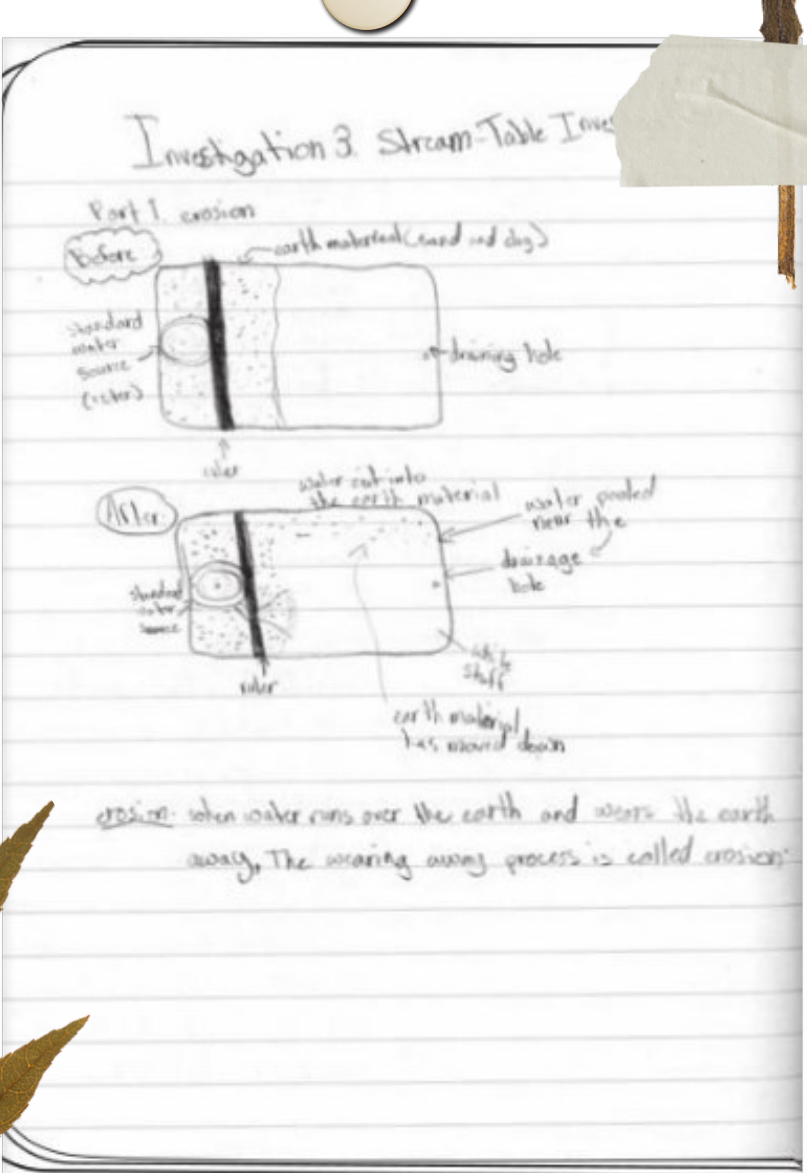 Investigation 3. Stream-Table Inves
Part 1. erosion
Before
earth material (sand and clay)
standard
water
source
(water)
draining hole
ruler
After
water cut into
the earth material
water pooled
near the
drainage
hole
standard
water
source
ruler
stuff
earth material
has moved down
erosion- when water runs over the earth and wears the earth
away. The wearing away process is called erosion.